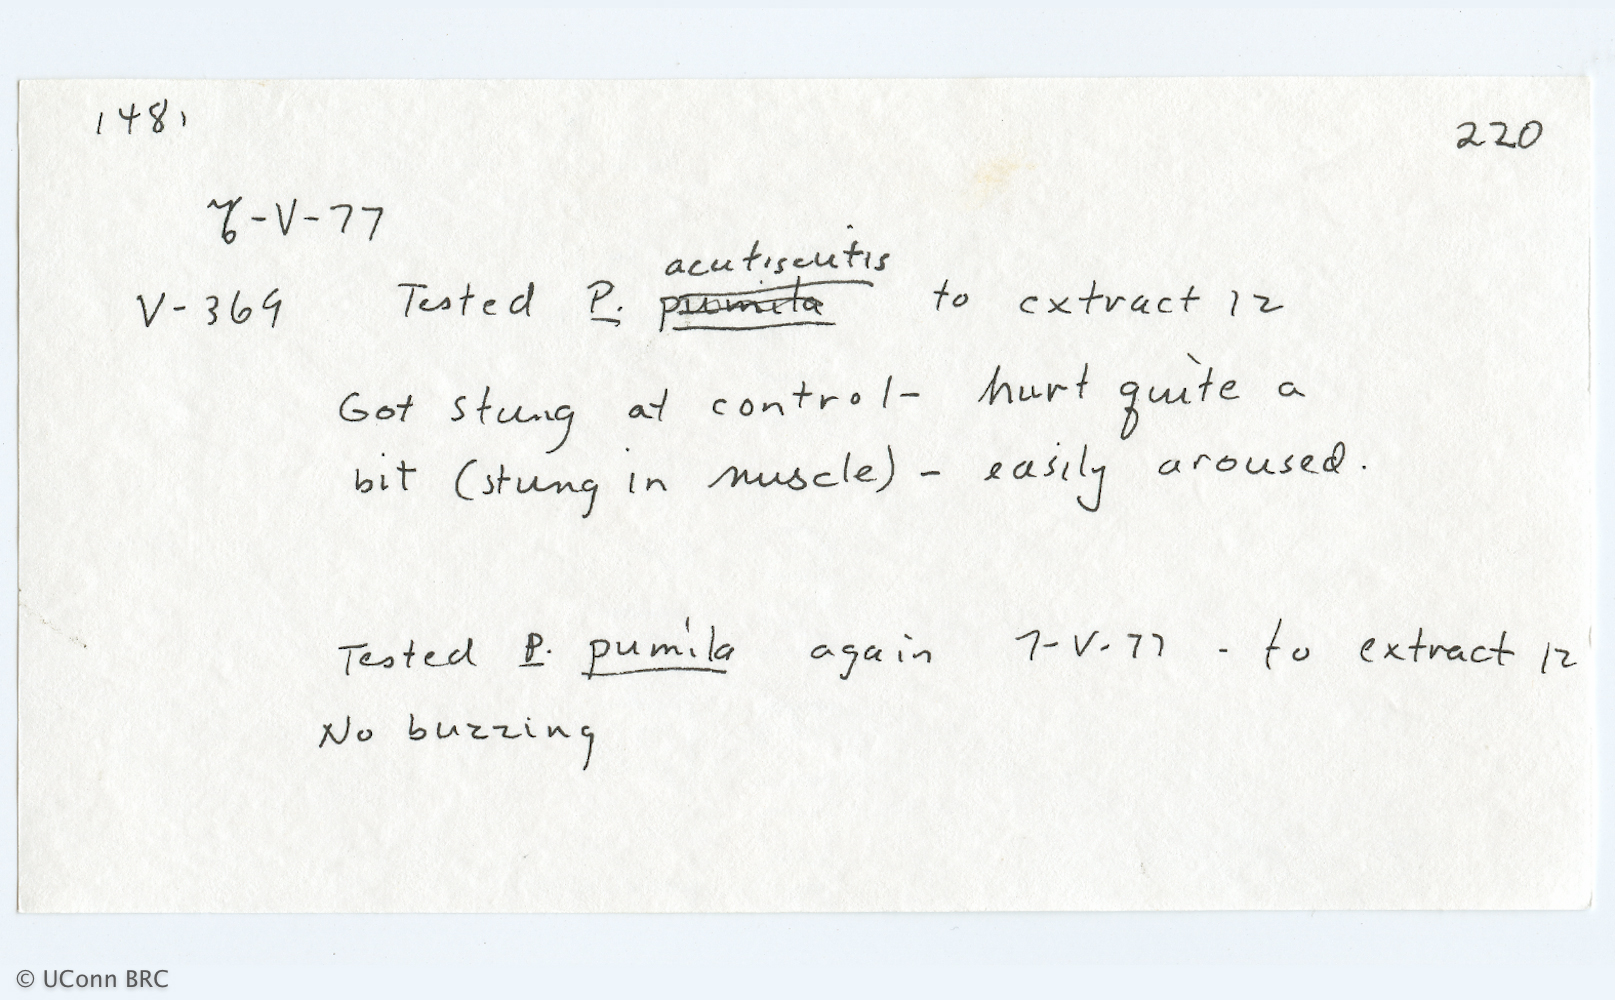 1481
220
6-V-77
acutiscutis
V-369 Tested P. pumila to extract 12
Got stung at control- hurt quite a
bit (stung in muscle) - easily aroused.
Tested P. pumila again 7-V-77 - to extract 12
No buzzing
© UConn BRC